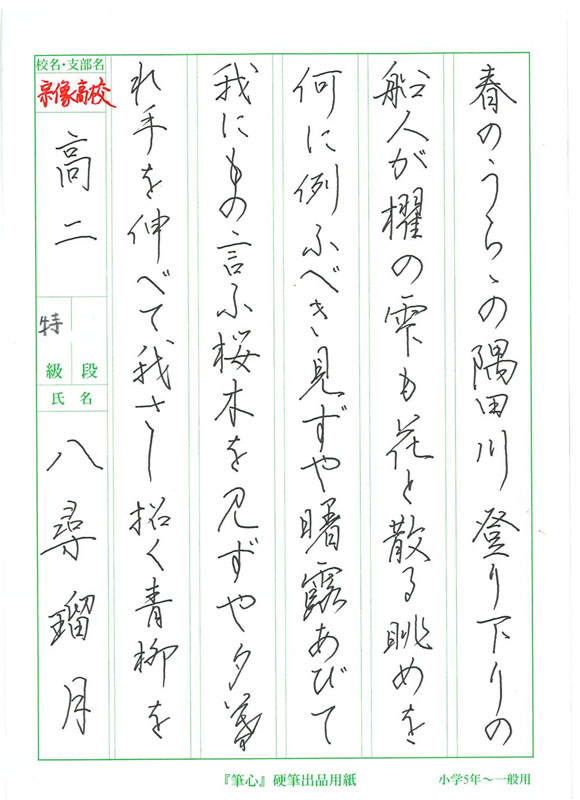 春のうらゝの隅田川登り下りの
船人が櫂の雫も花と散る眺めを
何に例ふべき見ずや曙露あびて
我にもの言ふ桜木を見ずや夕暮
れ手を伸べて我さし招く青柳を
校名・支部名
宗像高校
高二
特
級 段
氏名
八尋瑠月
『筆心』硬筆出品用紙
小学5年〜一般用